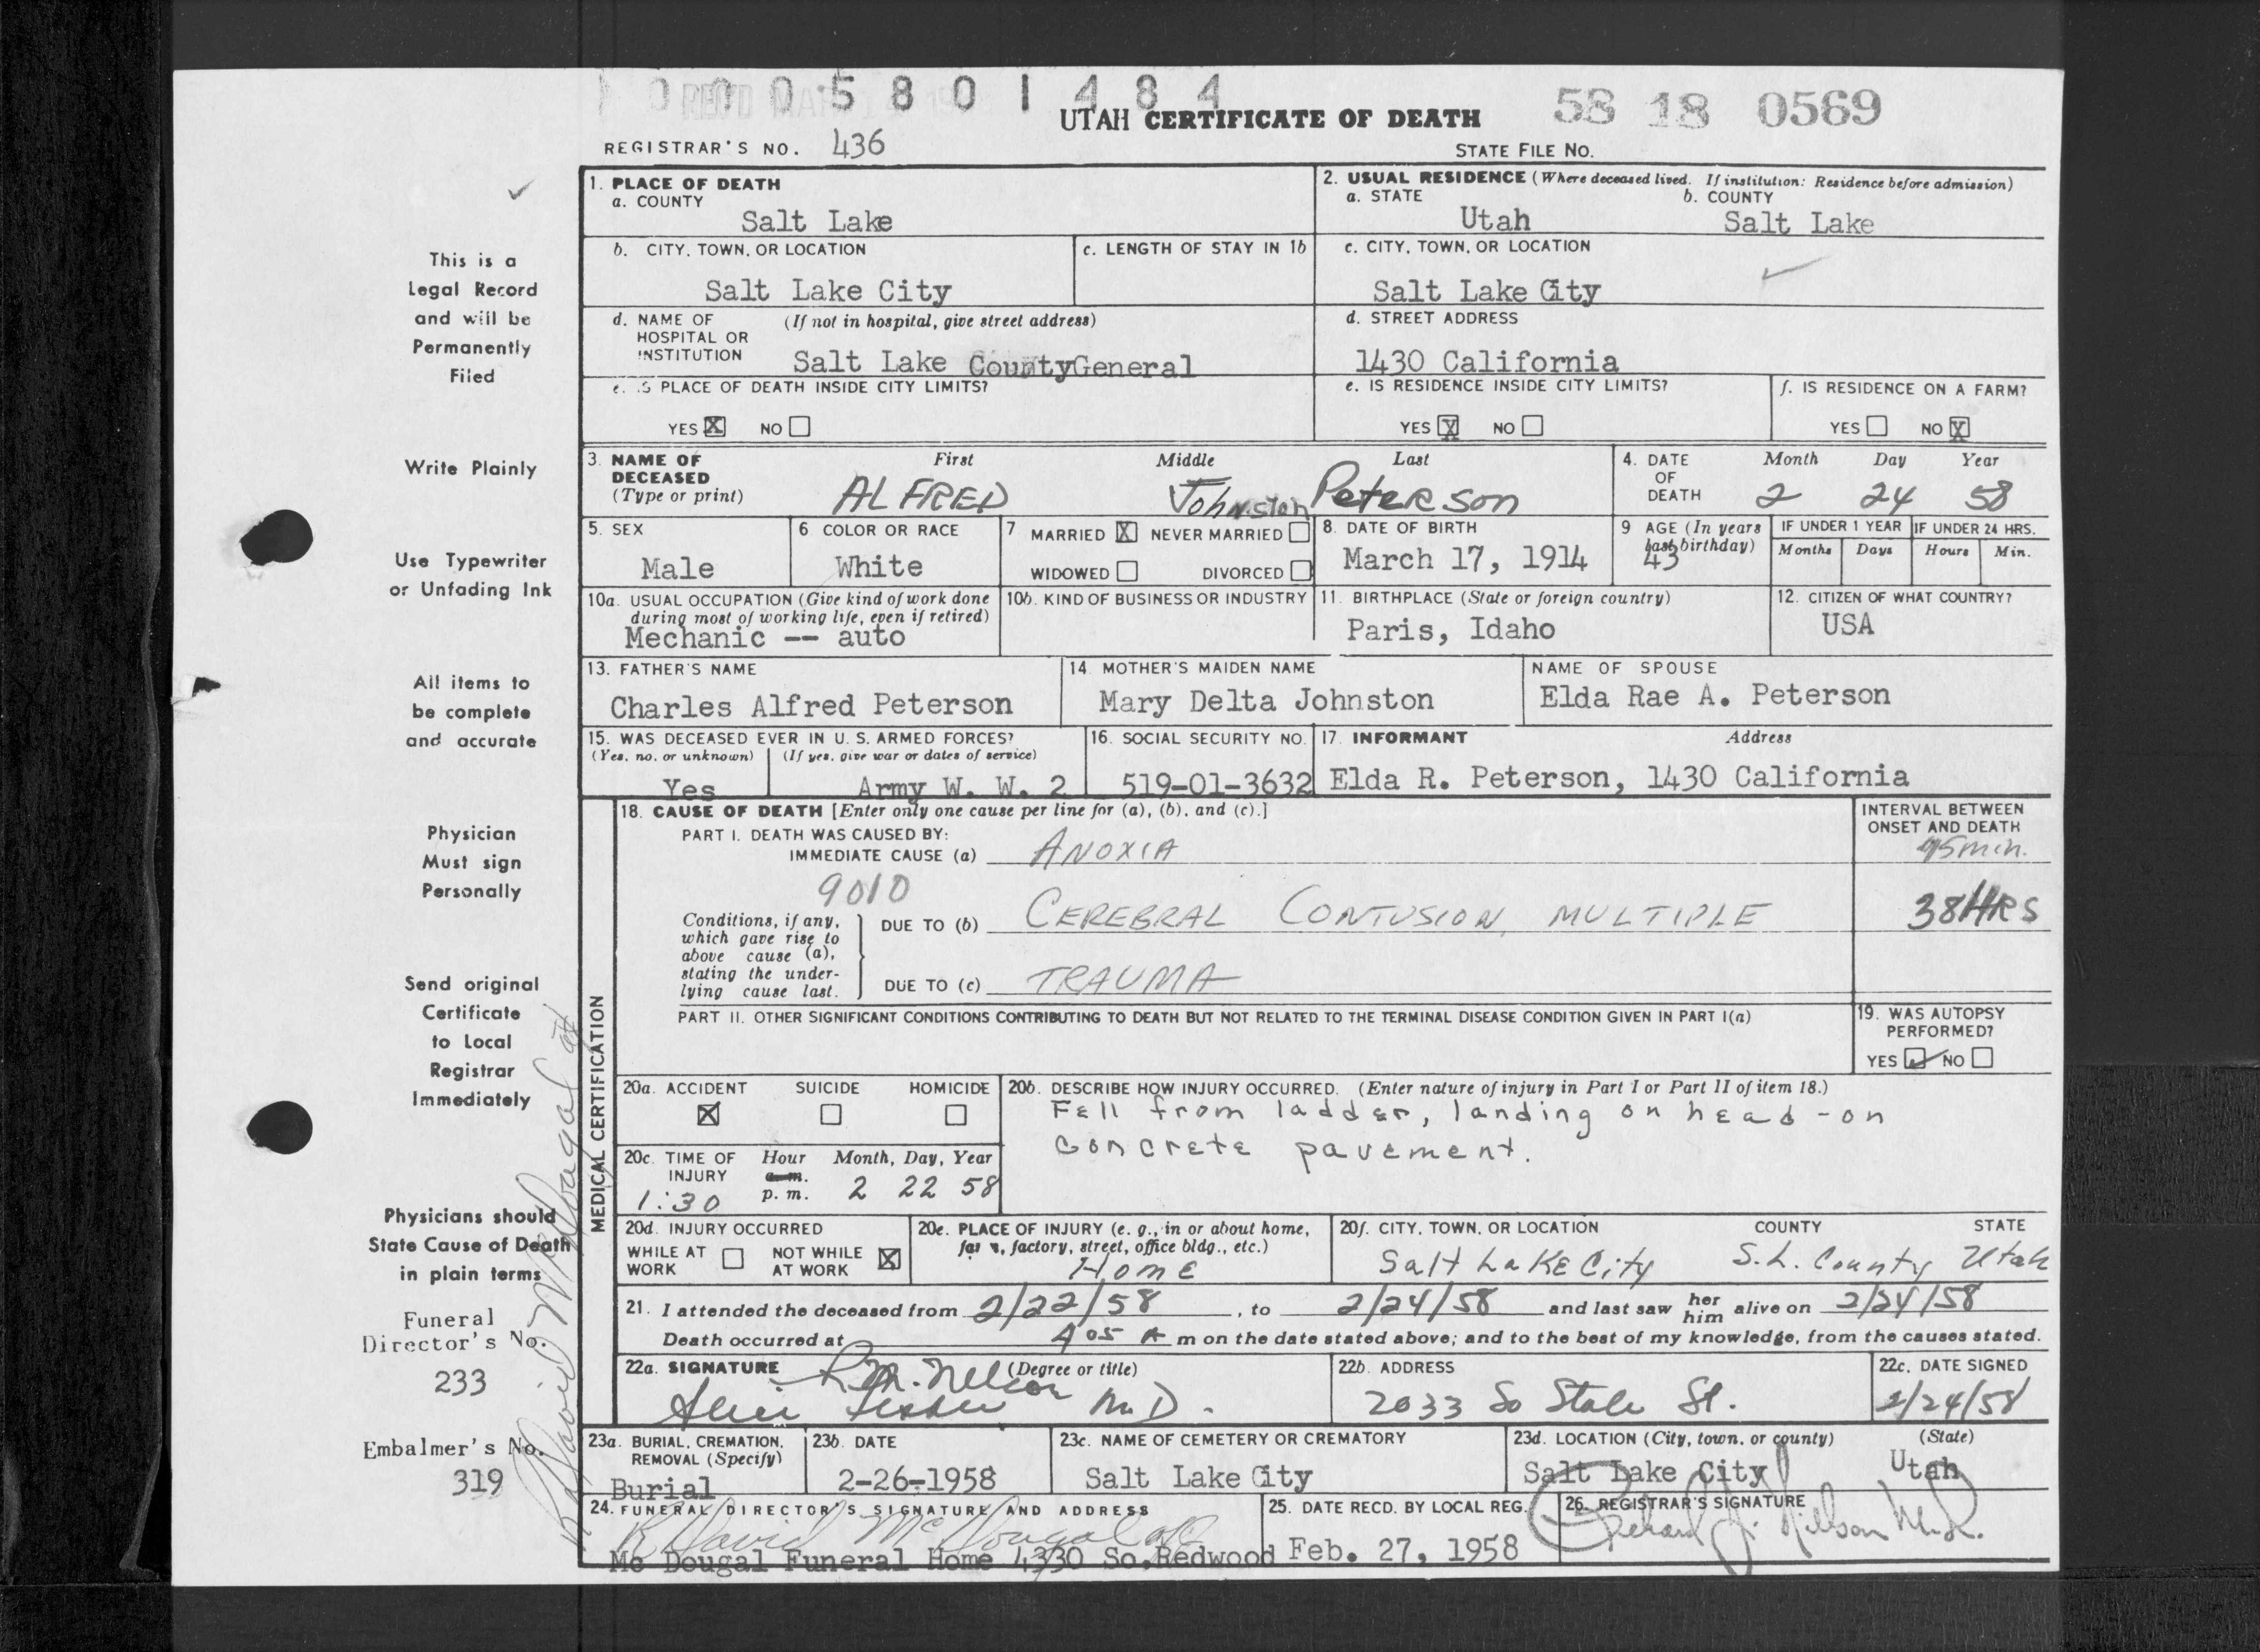 0005801484
UTAH CERTIFICATE OF DEATH
58 18 0569
REGISTRAR'S NO. 436
STATE FILE NO.
This is a
Legal Record
and will be
Permanently
Filed
Write Plainly
Use Typewriter
or Unfading Ink
All items to
be complete
and accurate
Physician
Must sign
Personally
Send original
Certificate
to Local
Registrar
Immediately
Physicians should
State Cause of Death
in plain terms
Funeral
Director's No.
233
Embalmer's No.
319
R David McDougal
1. PLACE OF DEATH
a. COUNTY
Salt Lake
2. USUAL RESIDENCE (Where deceased lived. If institution: Residence before admission)
a. STATE b. COUNTY
Utah Salt Lake
b. CITY, TOWN, OR LOCATION
Salt Lake City
c. LENGTH OF STAY IN 1b
c. CITY, TOWN, OR LOCATION
Salt Lake City
d. NAME OF (If not in hospital, give street address)
HOSPITAL OR
INSTITUTION Salt Lake CountyGeneral
d. STREET ADDRESS
1430 California
e. IS PLACE OF DEATH INSIDE CITY LIMITS?
YES X NO
e. IS RESIDENCE INSIDE CITY LIMITS?
YES X NO
f. IS RESIDENCE ON A FARM?
YES NO X
3. NAME OF First Middle Last
DECEASED
(Type or print) ALFRED Johnston Peterson
4. DATE Month Day Year
OF
DEATH 2 24 58
5. SEX
Male
6 COLOR OR RACE
White
7 MARRIED X NEVER MARRIED
WIDOWED DIVORCED
8. DATE OF BIRTH
March 17, 1914
9 AGE (In years
last birthday)
43
IF UNDER 1 YEAR IF UNDER 24 HRS.
Months Days Hours Min.
10a. USUAL OCCUPATION (Give kind of work done
during most of working life, even if retired)
Mechanic -- auto
10b. KIND OF BUSINESS OR INDUSTRY
11. BIRTHPLACE (State or foreign country)
Paris, Idaho
12. CITIZEN OF WHAT COUNTRY?
USA
13. FATHER'S NAME
Charles Alfred Peterson
14. MOTHER'S MAIDEN NAME
Mary Delta Johnston
NAME OF SPOUSE
Elda Rae A. Peterson
15. WAS DECEASED EVER IN U. S. ARMED FORCES?
(Yes, no, or unknown) (If yes, give war or dates of service)
Yes Army W. W. 2
16. SOCIAL SECURITY NO.
519-01-3632
17. INFORMANT Address
Elda R. Peterson, 1430 California
MEDICAL CERTIFICATION
18. CAUSE OF DEATH [Enter only one cause per line for (a), (b), and (c).]
PART I. DEATH WAS CAUSED BY:
IMMEDIATE CAUSE (a) ANOXIA
INTERVAL BETWEEN
ONSET AND DEATH
min.
9010
Conditions, if any,
which gave rise to
above cause (a),
stating the under-
lying cause last.
DUE TO (b) CEREBRAL CONTUSION, MULTIPLE
38 HRS
DUE TO (c) TRAUMA
PART II. OTHER SIGNIFICANT CONDITIONS CONTRIBUTING TO DEATH BUT NOT RELATED TO THE TERMINAL DISEASE CONDITION GIVEN IN PART I(a)
19. WAS AUTOPSY
PERFORMED?
YES ✓ NO
20a. ACCIDENT SUICIDE HOMICIDE
X
20b. DESCRIBE HOW INJURY OCCURRED. (Enter nature of injury in Part I or Part II of item 18.)
Fell from ladder, landing on head-on
concrete pavement.
20c. TIME OF Hour Month, Day, Year
INJURY a.m.
1:30 p. m. 2 22 58
20d. INJURY OCCURRED
WHILE AT NOT WHILE X
WORK AT WORK
20e. PLACE OF INJURY (e. g., in or about home,
farm, factory, street, office bldg., etc.)
Home
20f. CITY, TOWN, OR LOCATION COUNTY STATE
Salt Lake City S.L. County Utah
21. I attended the deceased from 2/22/58, to 2/24/58 and last saw her him alive on 2/24/58
Death occurred at 4 05 A m on the date stated above; and to the best of my knowledge, from the causes stated.
22a. SIGNATURE (Degree or title)
R.M. Nelson
M.D.
22b. ADDRESS
2033 So State St.
22c. DATE SIGNED
2/24/58
23a. BURIAL, CREMATION,
REMOVAL (Specify)
Burial
23b. DATE
2-26-1958
23c. NAME OF CEMETERY OR CREMATORY
Salt Lake City
23d. LOCATION (City, town, or county) (State)
Salt Lake City Utah
24. FUNERAL DIRECTOR'S SIGNATURE AND ADDRESS
R David McDougal
Mc Dougal Funeral Home 4330 So. Redwood
25. DATE RECD. BY LOCAL REG.
Feb. 27, 1958
26. REGISTRAR'S SIGNATURE